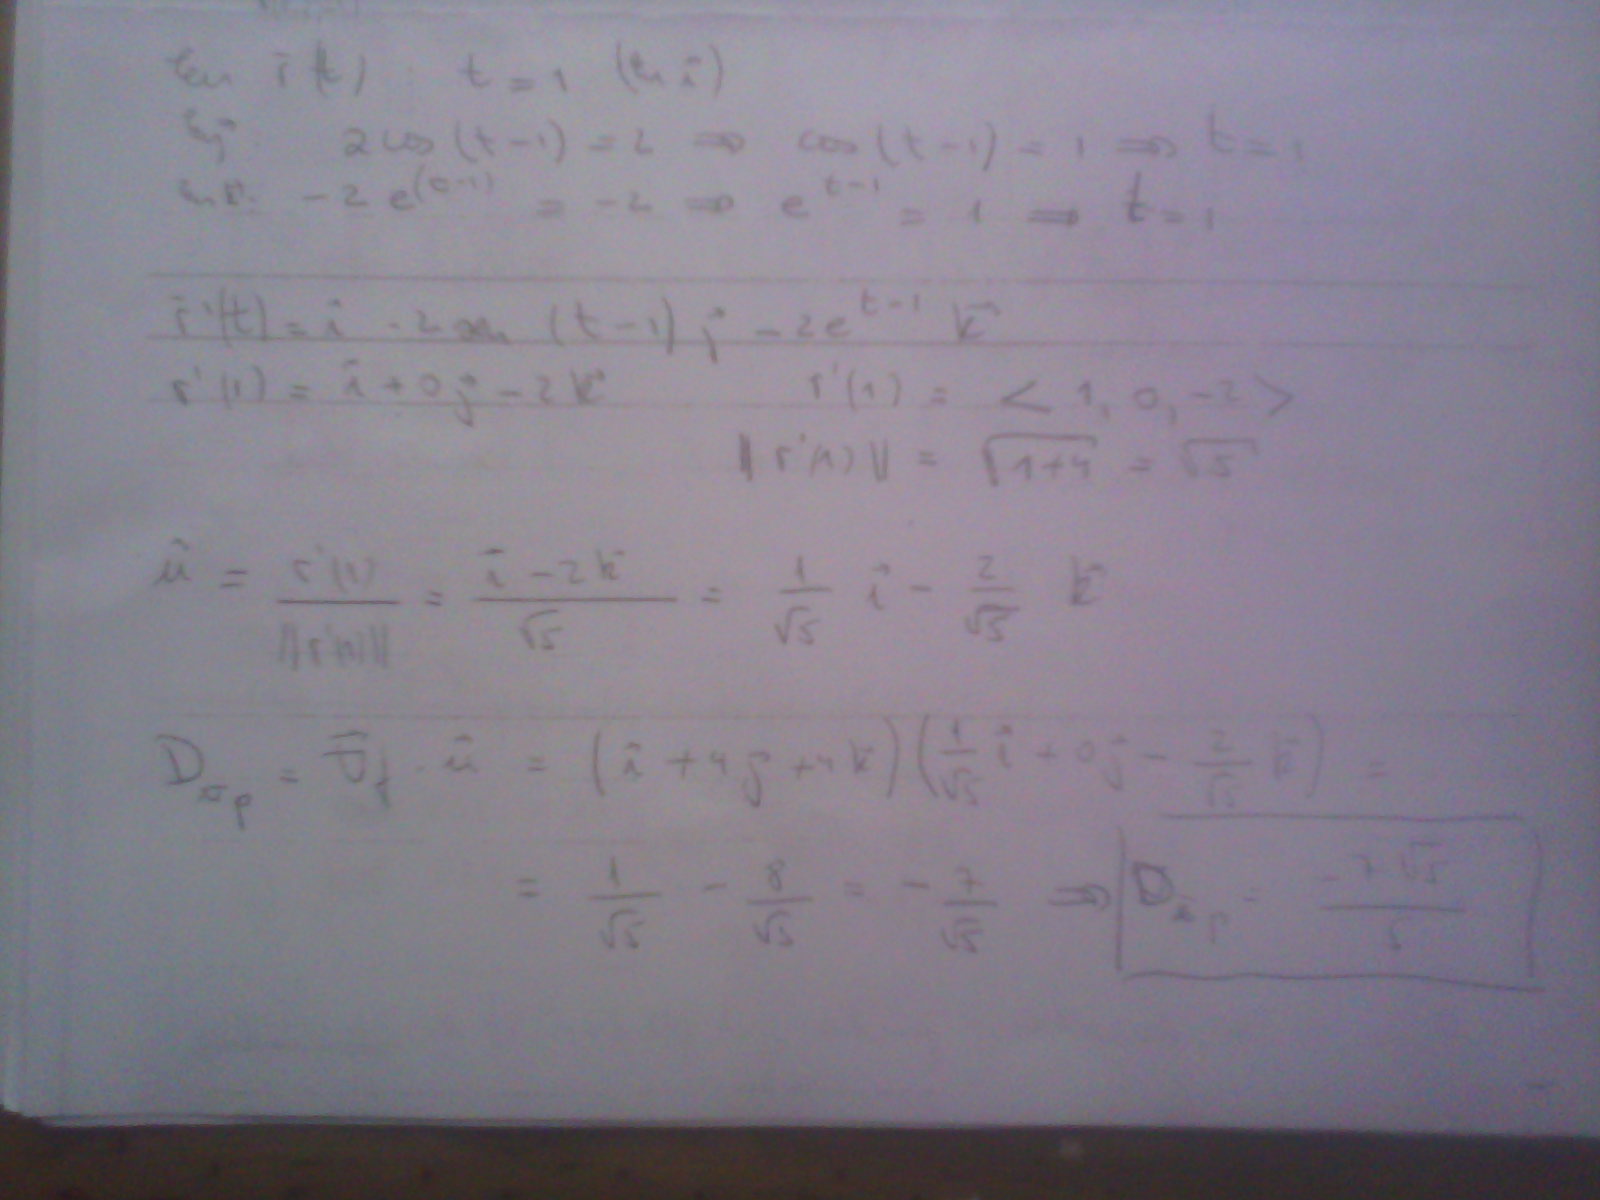 en r̄(t) : t = 1 (en î)
en j: 2 cos (t-1) = 2 ⇒ cos (t-1) = 1 ⇒ t = 1
en k: -2 e^(t-1) = -2 ⇒ e^t-1 = 1 ⇒ t = 1
r̄'(t) = î - 2 sen (t-1) j - 2e^t-1 k
r'(1) = i + 0 j - 2 k r'(1) = < 1, 0, -2 >
|| r'(1) || = √1+4 = √5
û = r'(1) / ||r'(1)|| = i - 2k / √5 = 1/√5 i - 2/√5 k
D = ∇f · û = (i + 4j + 4k) (1/√5 i + 0j - 2/√5 k) =
= 1/√5 - 8/√5 = - 7/√5 ⇒ D = -7√5 / 5